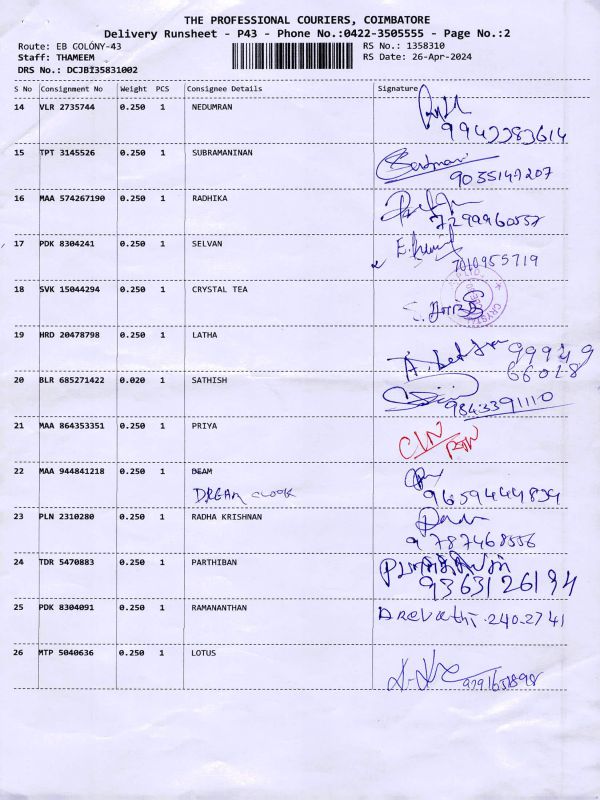 THE PROFESSIONAL COURIERS, COIMBATORE
Delivery Runsheet - P43 - Phone No.:0422-3505555 - Page No.:2
Route: EB COLONY-43 RS No.: 1358310
Staff: THAMEEM RS Date: 26-Apr-2024
DRS No.: DCJBI35831002
S No Consignment No Weight PCS Consignee Details Signature
14 VLR 2735744 0.250 1 NEDUMRAN
9943383614
15 TPT 3145526 0.250 1 SUBRAMANINAN
9035147207
16 MAA 574267190 0.250 1 RADHIKA
7299960557
17 PDK 8304241 0.250 1 SELVAN
7010955719
18 SVK 15044294 0.250 1 CRYSTAL TEA
19 HRD 20478798 0.250 1 LATHA
99949
66018
20 BLR 685271422 0.020 1 SATHISH
9843391110
21 MAA 864353351 0.250 1 PRIYA
22 MAA 944841218 0.250 1 BEAM
DREAM CLOOK
9659444834
23 PLN 2310280 0.250 1 RADHA KRISHNAN
9787468556
24 TDR 5470883 0.250 1 PARTHIBAN
9363126194
25 PDK 8304091 0.250 1 RAMANANTHAN
D Revathi. 240.2741
26 MTP 5040636 0.250 1 LOTUS